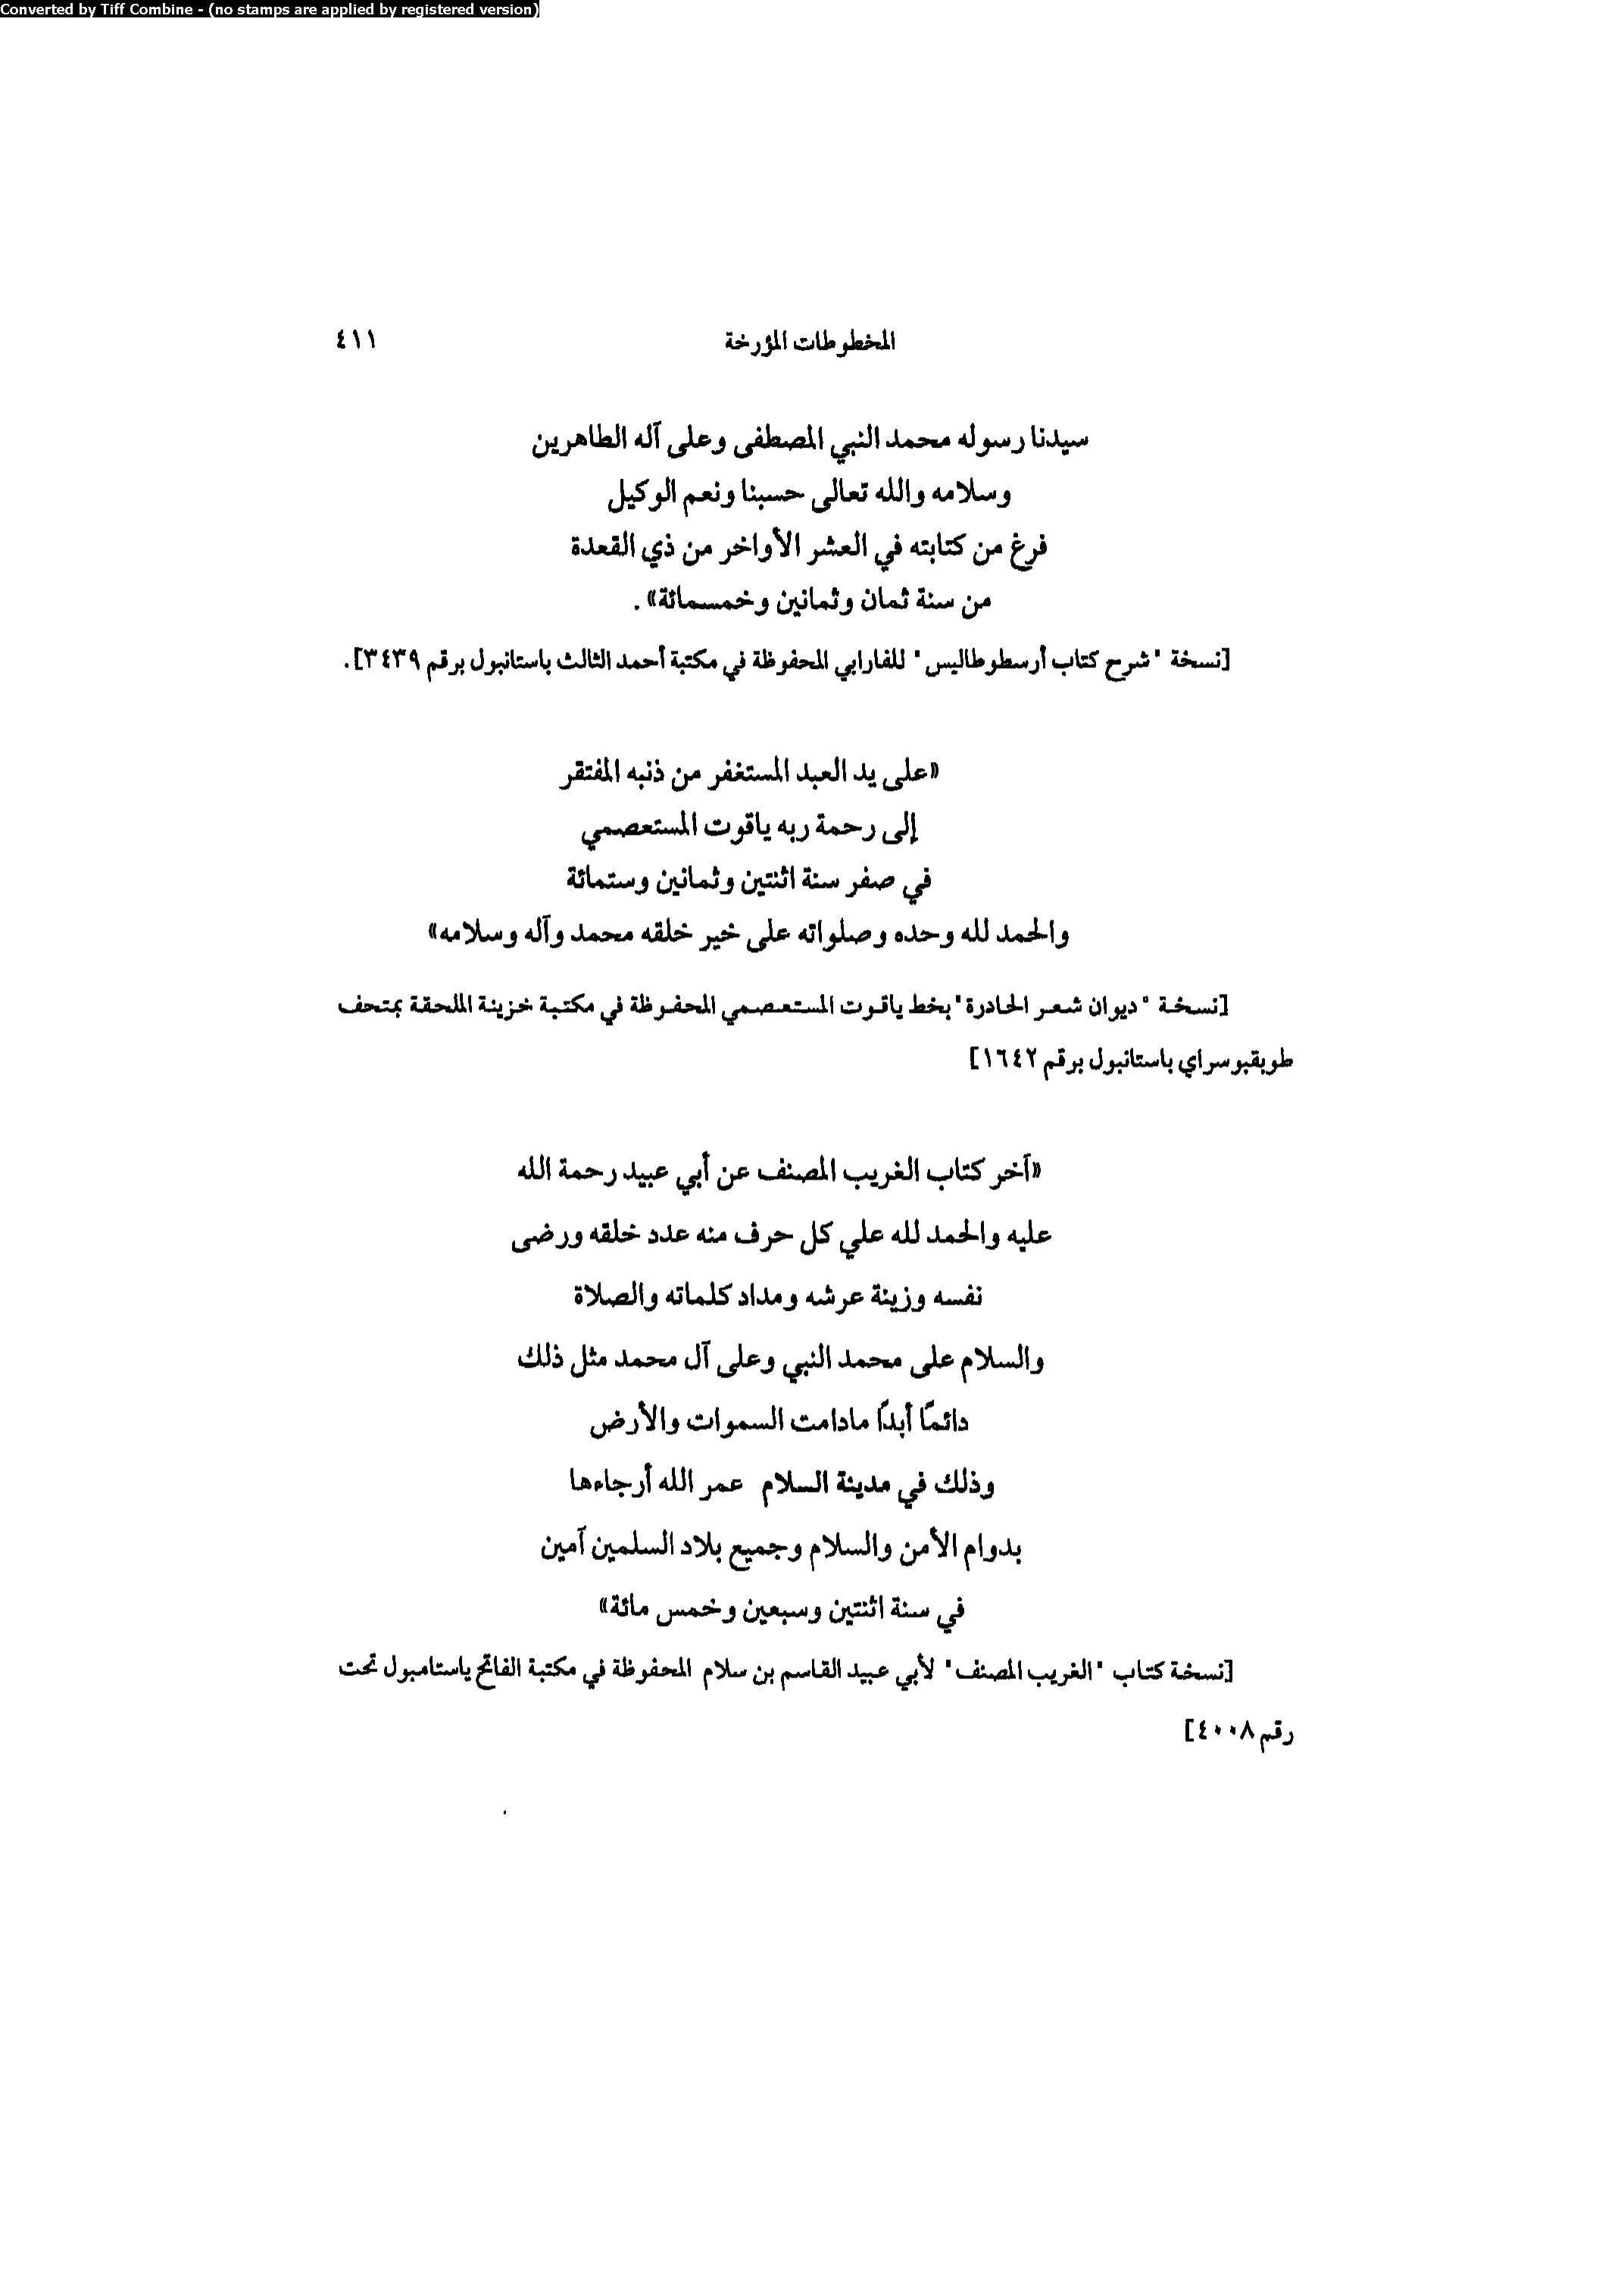 Converted by Tiff Combine - (no stamps are applied by registered version)
المخطوطات المؤرخة ٤١١
سيدنا رسوله محمد النبي المصطفى وعلى آله الطاهرين
وسلامه والله تعالى حسبنا ونعم الوكيل
فرغ من كتابته في العشر الأواخر من ذي القعدة
من سنة ثمان وثمانين وخمسمائة» .
[نسخة "شرح كتاب أرسطوطاليس" للفارابي المحفوظة في مكتبة أحمد الثالث باستانبول برقم ٣٤٣٩].
«على يد العبد المستغفر من ذنبه المفتقر
إلى رحمة ربه ياقوت المستعصمي
في صفر سنة اثنتين وثمانين وستمائة
والحمد لله وحده وصلواته على خير خلقه محمد وآله وسلامه»
[نسخة "ديوان شعر الحادرة" بخط ياقوت المستعصمي المحفوظة في مكتبة خزينة الملحقة بمتحف
طوبقبوسراي باستانبول برقم ١٦٤٢]
«آخر كتاب الغريب المصنف عن أبي عبيد رحمة الله
عليه والحمد لله علي كل حرف منه عدد خلقه ورضى
نفسه وزينة عرشه ومداد كلماته والصلاة
والسلام على محمد النبي وعلى آل محمد مثل ذلك
دائمًا أبدًا مادامت السموات والأرض
وذلك في مدينة السلام عمر الله أرجاءها
بدوام الأمن والسلام وجميع بلاد السلمين آمين
في سنة اثنتين وسبعين وخمس مائة»
[نسخة كتاب "الغريب المصنف" لأبي عبيد القاسم بن سلام المحفوظة في مكتبة الفاتح ياستامبول تحت
رقم ٤٠٠٨]